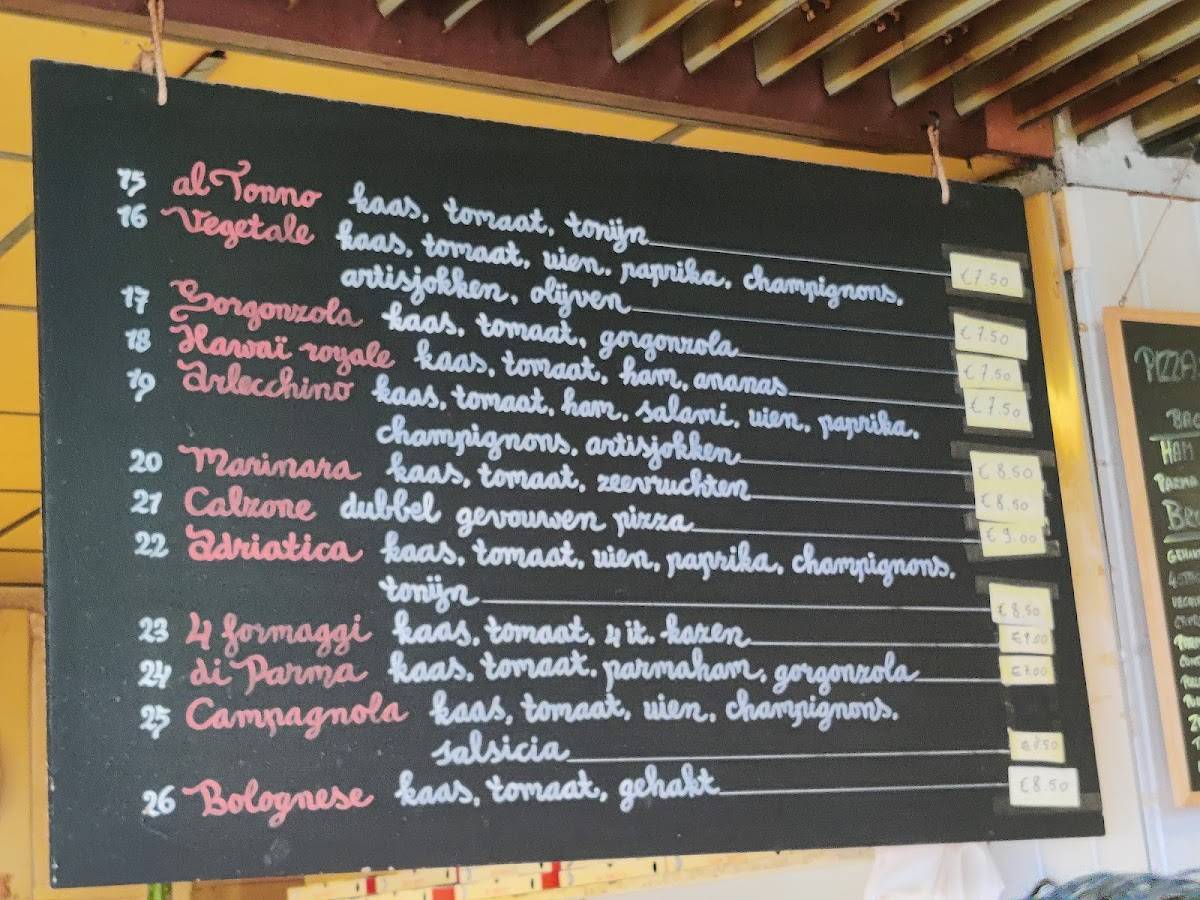 15 al Tonno kaas, tomaat, tonijn €7.50
16 Vegetale kaas, tomaat, uien, paprika, champignons,
artisjokken, olijven €7.50
17 Gorgonzola kaas, tomaat, gorgonzola €7.50
18 Hawaï royale kaas, tomaat, ham, ananas €7.50
19 Arlecchino kaas, tomaat, ham, salami, uien, paprika,
champignons, artisjokken €8.50
20 Marinara kaas, tomaat, zeevruchten €8.50
21 Calzone dubbel gevouwen pizza €9.00
22 Adriatica kaas, tomaat, uien, paprika, champignons,
tonijn €8.50
23 4 formaggi kaas, tomaat, 4 it. kazen €9.00
24 di Parma kaas, tomaat. parmaham, gorgonzola
25 Campagnola kaas, tomaat, uien, champignons,
salsicia
26 Bolognese kaas, tomaat, gehakt €8.50
PIZZA
HAM
PARMA